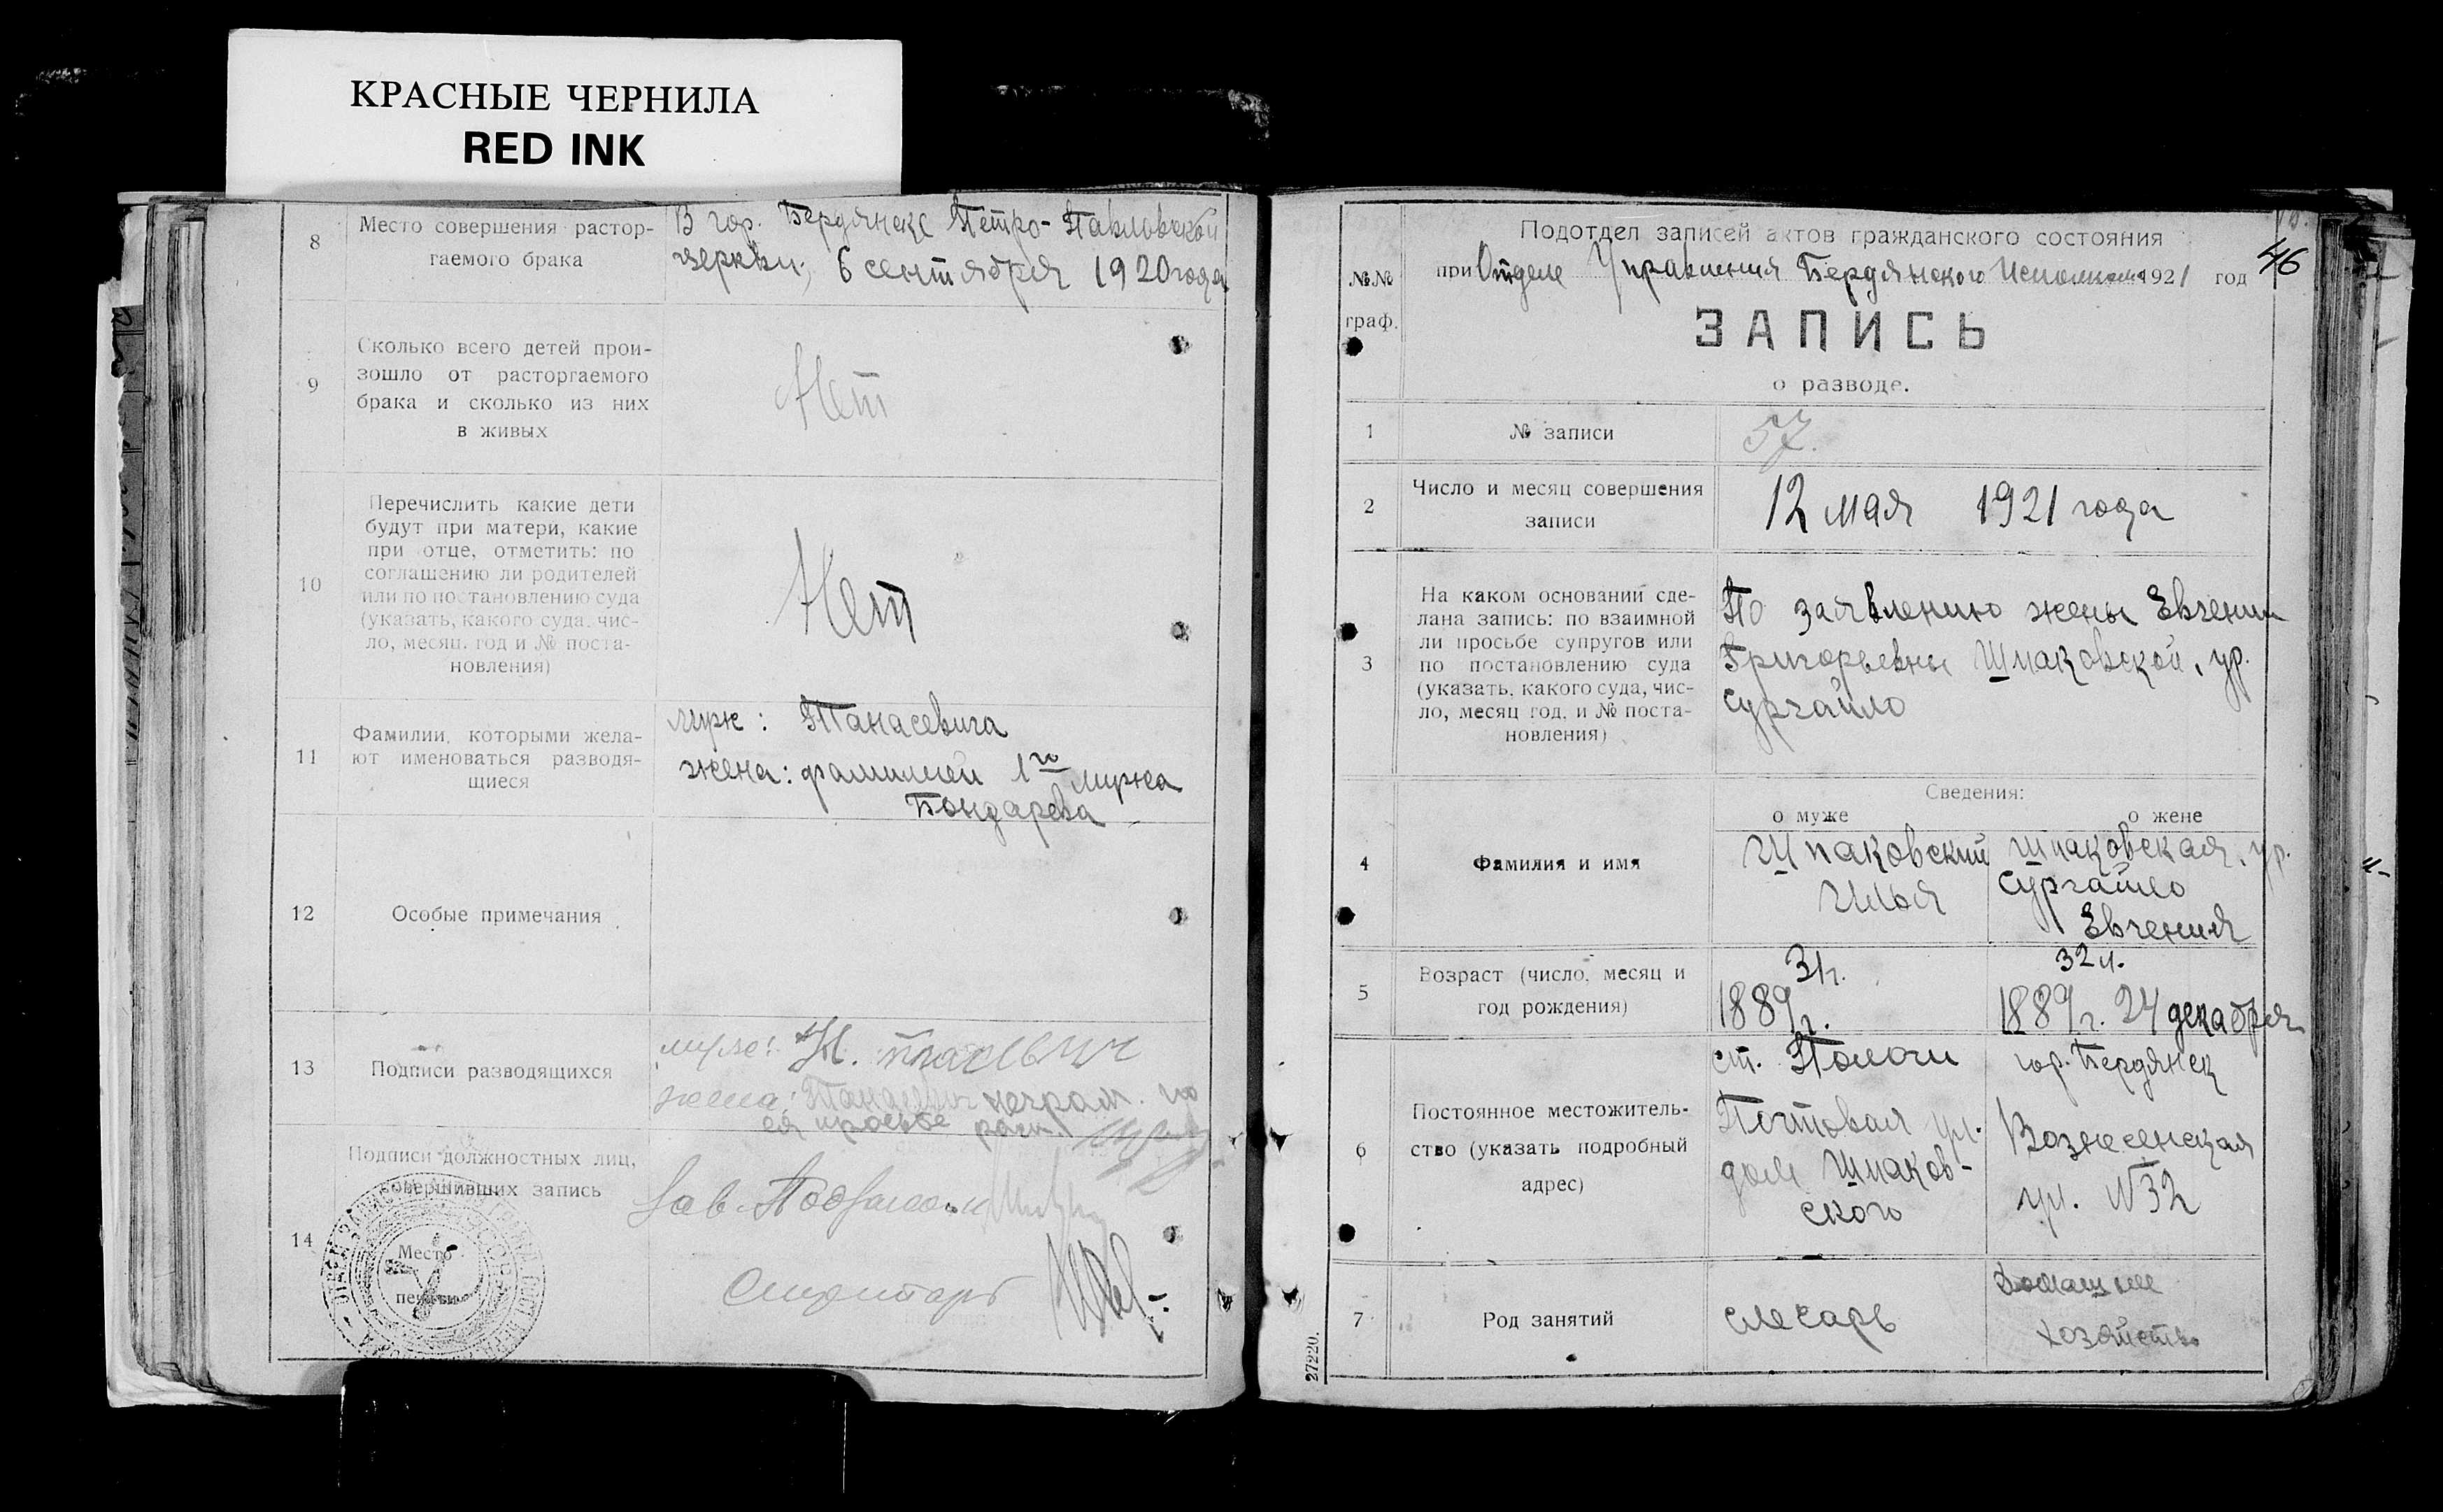 КРАСНЫЕ ЧЕРНИЛА
RED INK
8
Место совершения растор-
гаемого брака
В гор. Бердянске Петро-Павловской
церкви, 6 сентября 1920 года
9
Сколько всего детей прои-
зошло от расторгаемого
брака и сколько из них
в живых
Нет
10
Перечислить какие дети
будут при матери, какие
при отце, отметить: по
соглашению ли родителей
или по постановлению суда
(указать, какого суда, чис-
ло, месяц, год и № поста-
новления)
Нет
11
Фамилии, которыми жела-
ют именоваться разводя-
щиеся
муж: Танасевича
жена: фамилией 1го мужа
Бондарева
12
Особые примечания
13
Подписи разводящихся
муж:
жена: Танасевич неграм. по
ея просьбе
Подписи должностных лиц,
совершивших запись
14
Место
печати
Зав. Подотделом
Секретарь
46
Подотдел записей актов гражданского состояния
при Отделе Управления Бердянского Исполкома 1921 год
№№
граф.
ЗАПИСЬ
о разводе.
1
№ записи
57.
2
Число и месяц совершения
записи
12 мая 1921 года
3
На каком основании сде-
лана запись: по взаимной
ли просьбе супругов или
по постановлению суда
(указать, какого суда, чис-
ло, месяц год, и № поста-
новления)
По заявлению жены Евгении
Григорьевны Шпаковской, ур.
Сургайло
Сведения:
о муже
о жене
4
Фамилия и имя
Шпаковский
Илья
Шпаковская, ур.
Сургайло
Евгения
5
Возраст (число, месяц и
год рождения)
31 г.
1889 г.
32 л.
1889 г. 24 декабря
6
Постоянное местожитель-
ство (указать подробный
адрес)
ст. Пологи
Почтовая ул.
дом Шпаков-
ского
гор. Бердянск
Вознесенская
ул. №32
7
Род занятий
слесарь
Домашнее
хозяйство
27220.